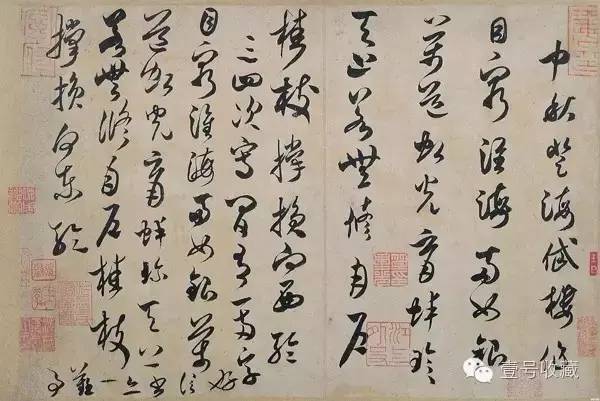 中秋登海岱樓作
目窮淮海兩如銀
萬道虹光育蚌珍
天上若無修月戶
桂枝撐損向西輪
三四次寫間有一兩字好
信書亦一難事
目窮淮海兩如銀萬
道虹光育蚌珍天上
若無修月戶桂枝
撐損向東輪
壹号收藏